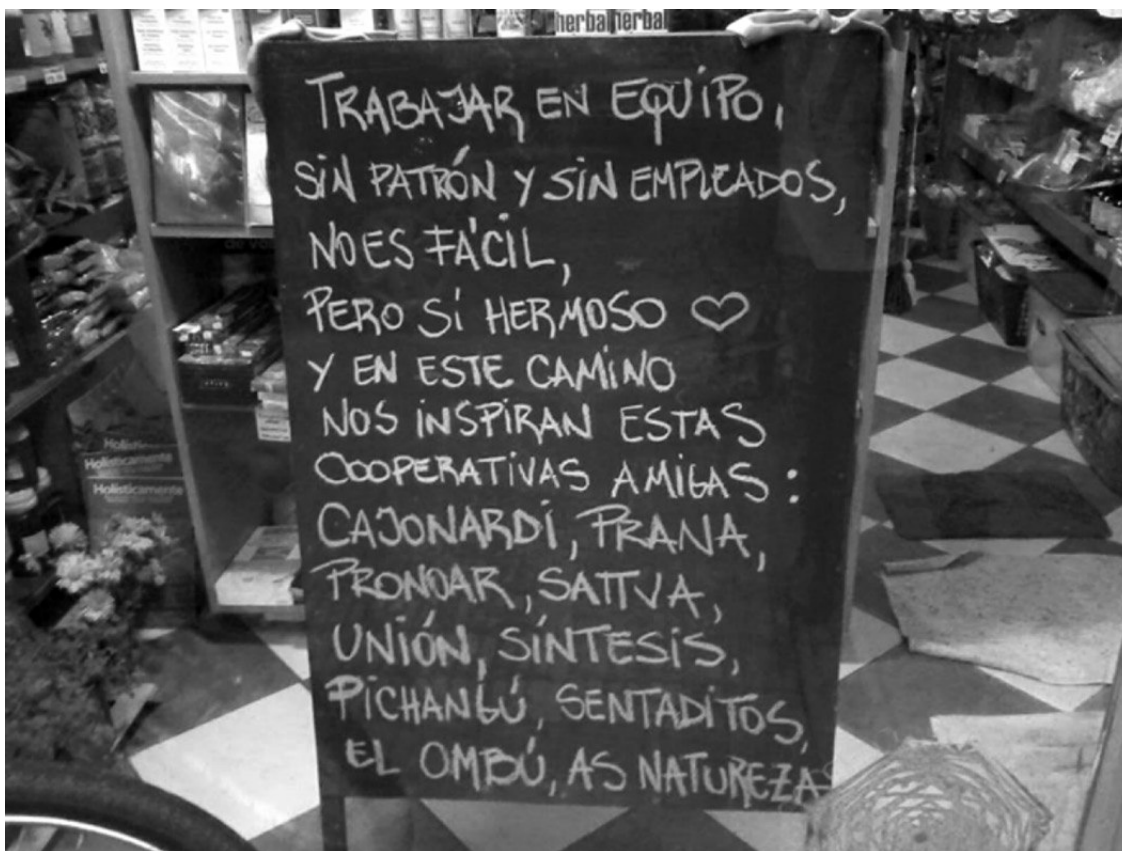 herba herbal
TRABAJAR EN EQUIPO,
SIN PATRÓN Y SIN EMPLEADOS,
NO ES FÁCIL,
PERO SÍ HERMOSO ♡
Y EN ESTE CAMINO
NOS INSPIRAN ESTAS
COOPERATIVAS AMIGAS:
CAJONARDI, PRANA,
PRONOAR, SATTVA,
UNIÓN, SÍNTESIS,
PICHANGÚ, SENTADITOS,
EL OMBÚ, AS NATUREZAS
Holísticamente
Holísticamente